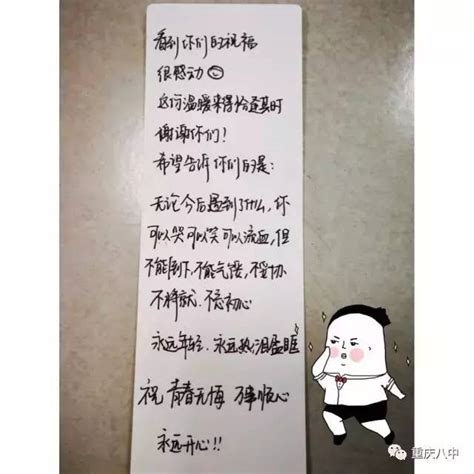 看到你们的祝福
很感动
这份温暖来得恰逢其时
谢谢你们！
希望告诉你们的是：
无论今后遇到了什么，你
可以哭可以笑可以流血，但
不能倒下，不能气馁，不妥协
不将就、不忘初心
永远年轻、永远热泪盈眶
祝 青春无悔 万事顺心
永远开心!!
重庆八中